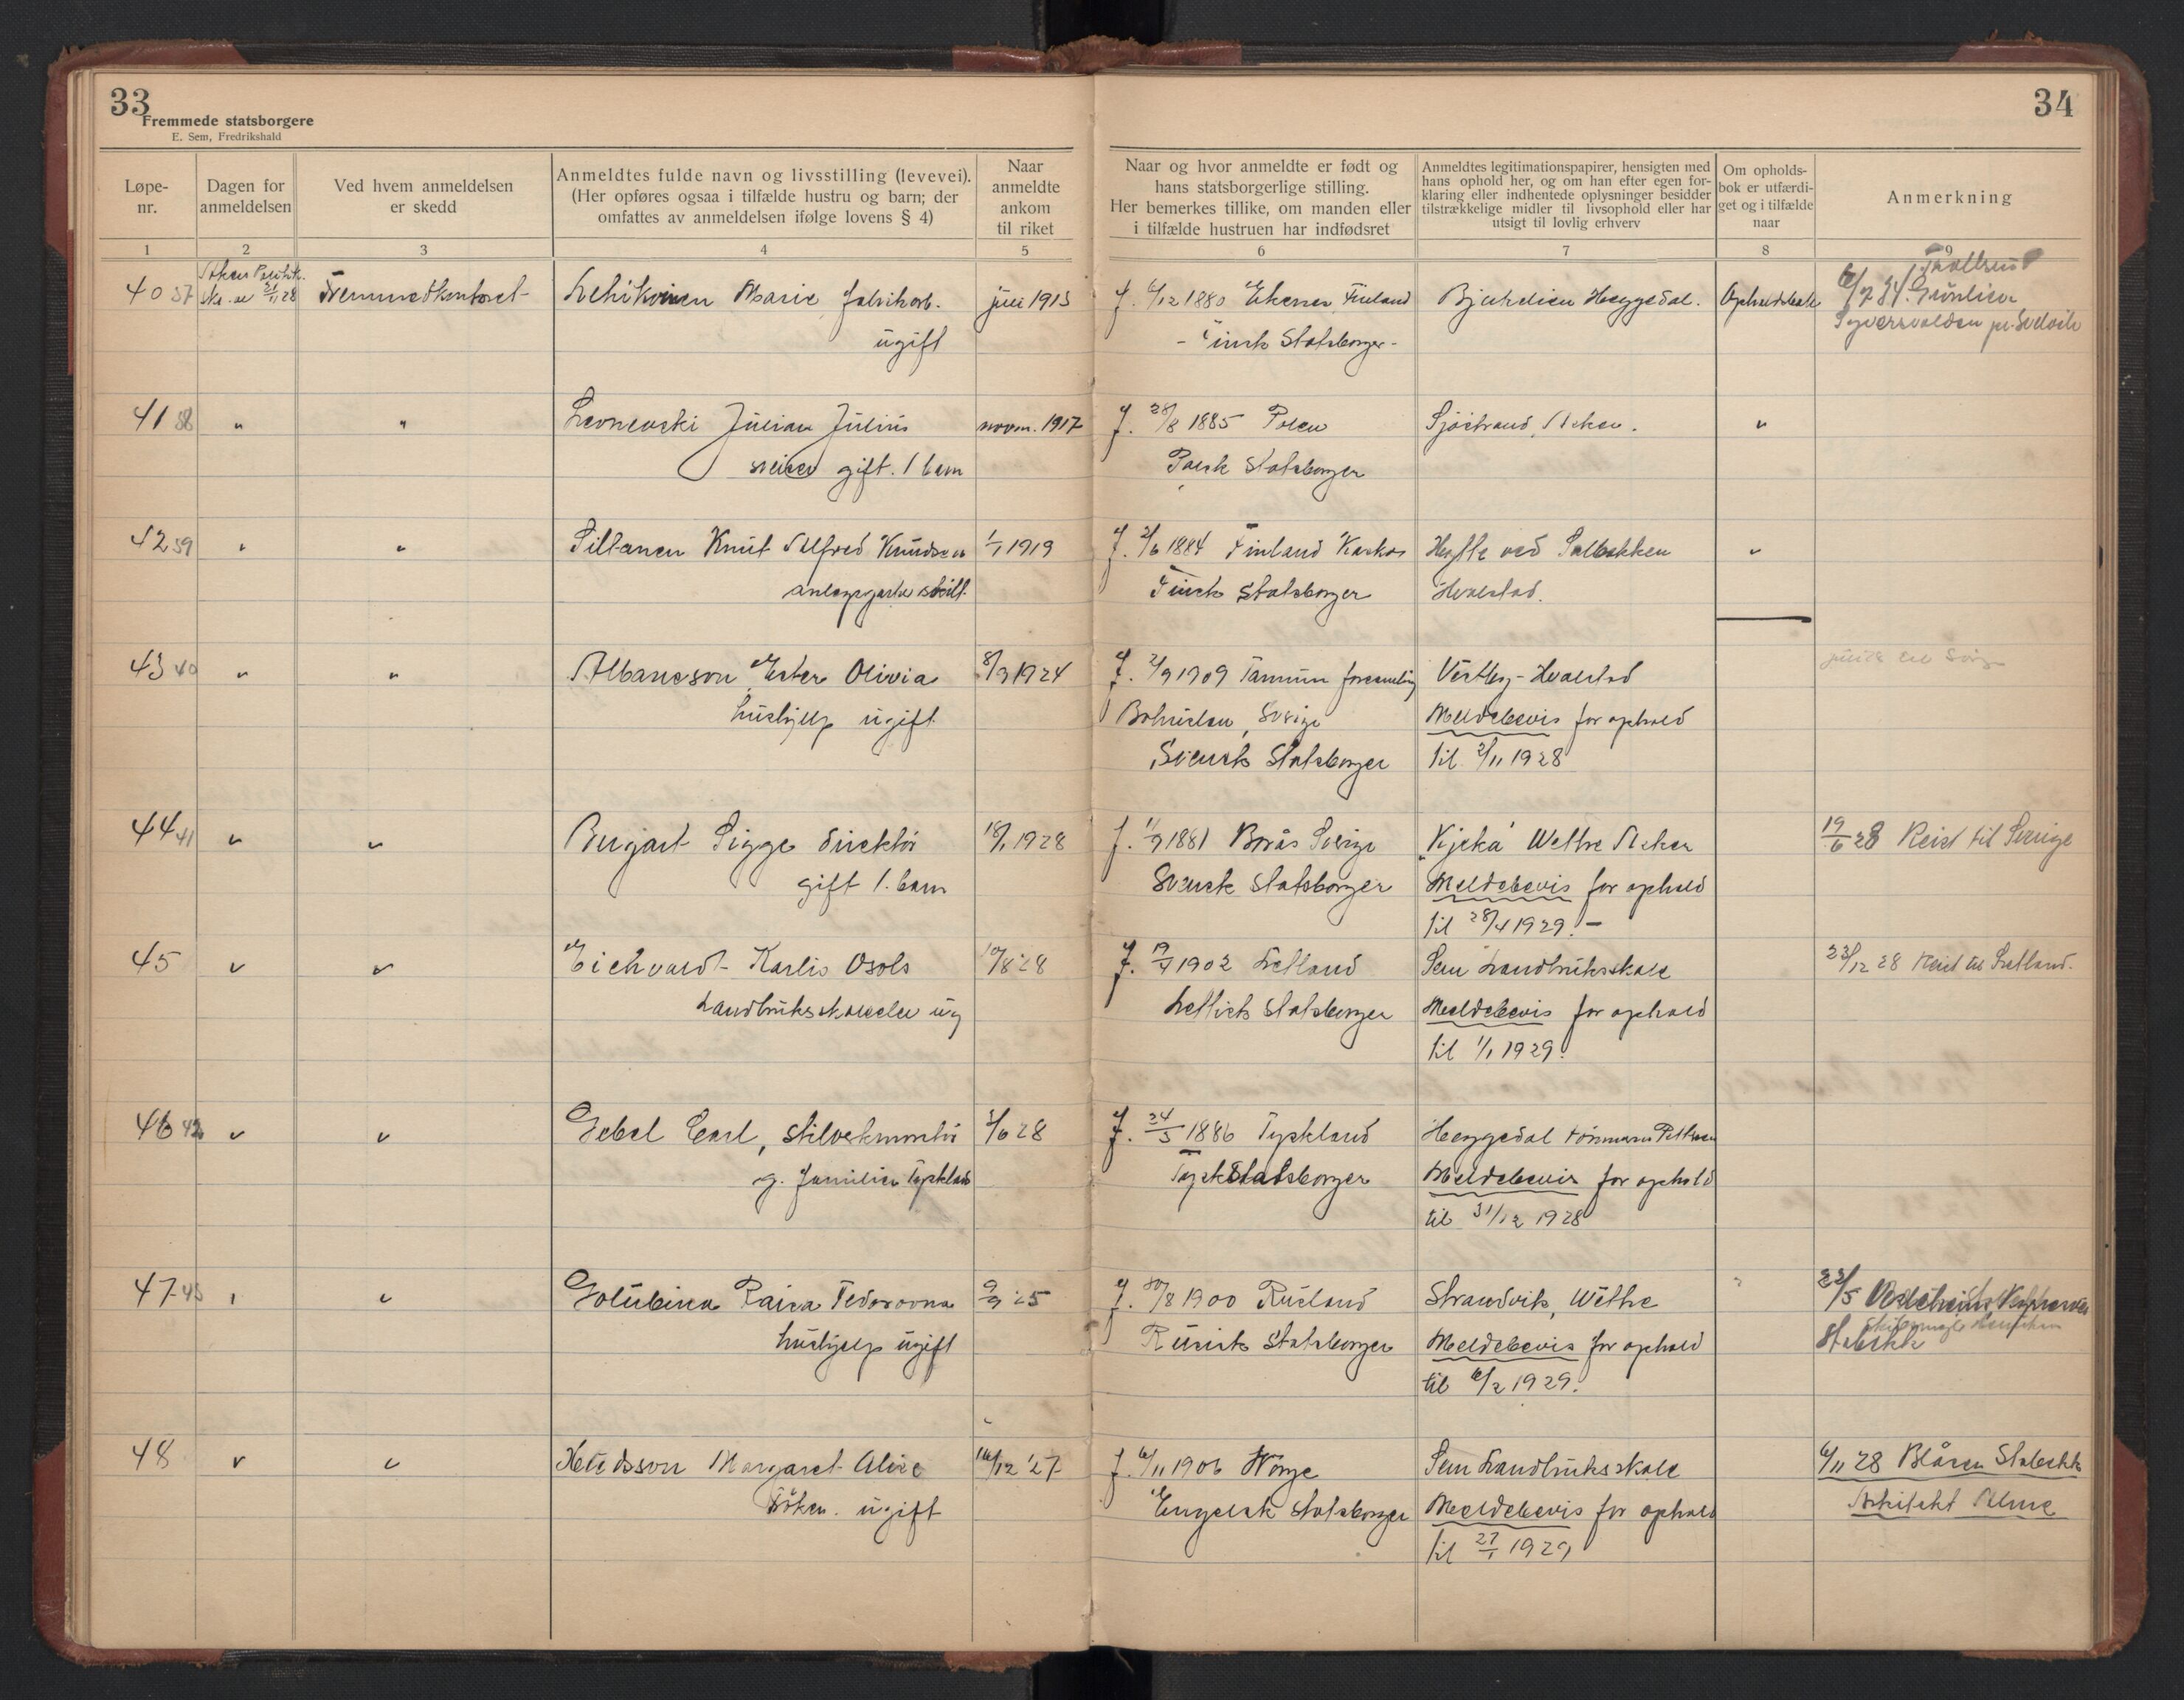 33
Fremmede statsborgere
E. Sem, Fredrikshald
34
Løpe-
nr.
Dagen for
anmeldelsen
Ved hvem anmeldelsen
er skedd
Anmeldtes fulde navn og livsstilling (levevei).
(Her opføres ogsaa i tilfælde hustru og barn; der
omfattes av anmeldelsen ifølge lovens § 4)
Naar
anmeldte
ankom
til riket
Naar og hvor anmeldte er født og
hans statsborgerlige stilling.
Her bemerkes tillike, om manden eller
i tilfælde hustruen har indfødsret
Anmeldtes legitimationspapirer, hensigten med
hans ophold her, og om han efter egen for-
klaring eller indhentede oplysninger besidder
tilstrækkelige midler til livsophold eller har
utsigt til lovlig erhverv
Om opholds-
bok er utfærdi-
get og i tilfælde
naar
Anmerkning
1 2 3 4 5 6 7 8 9
40 37 21/11 28 Fremmedkontoret Lehikoinen Marie fabrikarb. juli 1913 f. 6/12 1880 Ekenes Finland Bjerkelien Heggedal. Opholdsbok 6/7 34. Grønlien
ugift - Finsk Statsborger -
41 38 " " Levnevski Julian Julius novm. 1917 f. 28/8 1885 Polen Sjøstrand, Asker. "
sveiser gift. 1 barn Polsk Statsborger
42 39 " " Siltanen Knut Alfred Knudsen 1/1 1919 f. 2/6 1884 Finland Kaskø Hytte ved Solbakken "
anlegsgartner skilt. Finsk Statsborger Hvalstad.
43 40 " " Albanesson Ester Olivia 8/3 1924 f. 2/9 1909 Tanum forsamling Vestby - Hvalstad
hushjelp ugift Bohuslen, Sverige Meldebevis for ophold
Svensk Statsborger til 2/11 1928
44 41 " " Bergart Sigge direktør 18/1 1928 f. 11/9 1881 Borås Sverige "Kjeka" Wettre Asker 19/6 28 Reist til Sverige
gift 1. barn Svensk Statsborger Meldebevis for ophold
til 28/4 1929. -
45 " " Eichvardt Karlis Osols 10/8 28 f. 19/4 1902 Letland Sem Landbruksskole 23/12 28 Reist til Letland.
Landbruksskoleelev ug Lettisk Statsborger Meldebevis for ophold
til 1/1 1929.
46 42 " " Gebel Carl, 3/6 28 f. 24/5 1886 Tyskland Heggedal Formann Pettersen
g. familien Tyskland Tysk Statsborger Meldebevis for ophold
til 31/12 1928
47 43 " " Golubina Raisa Fedorovna 9/9 25 f. 30/8 1900 Rusland Strandvik, Wettre 22/5
hushjelp ugift Russisk Statsborger Meldebevis for ophold Stabekk
til 6/2 1929.
48 " " Hendsson Margaret Alice 16/12 27 f. 6/11 1906 Norge Sem Landbruksskole 6/11 28 Blåsen Stabekk
frøken. ugift Engelsk Statsborger Meldebevis for ophold Arkitekt
til 27/1 1929